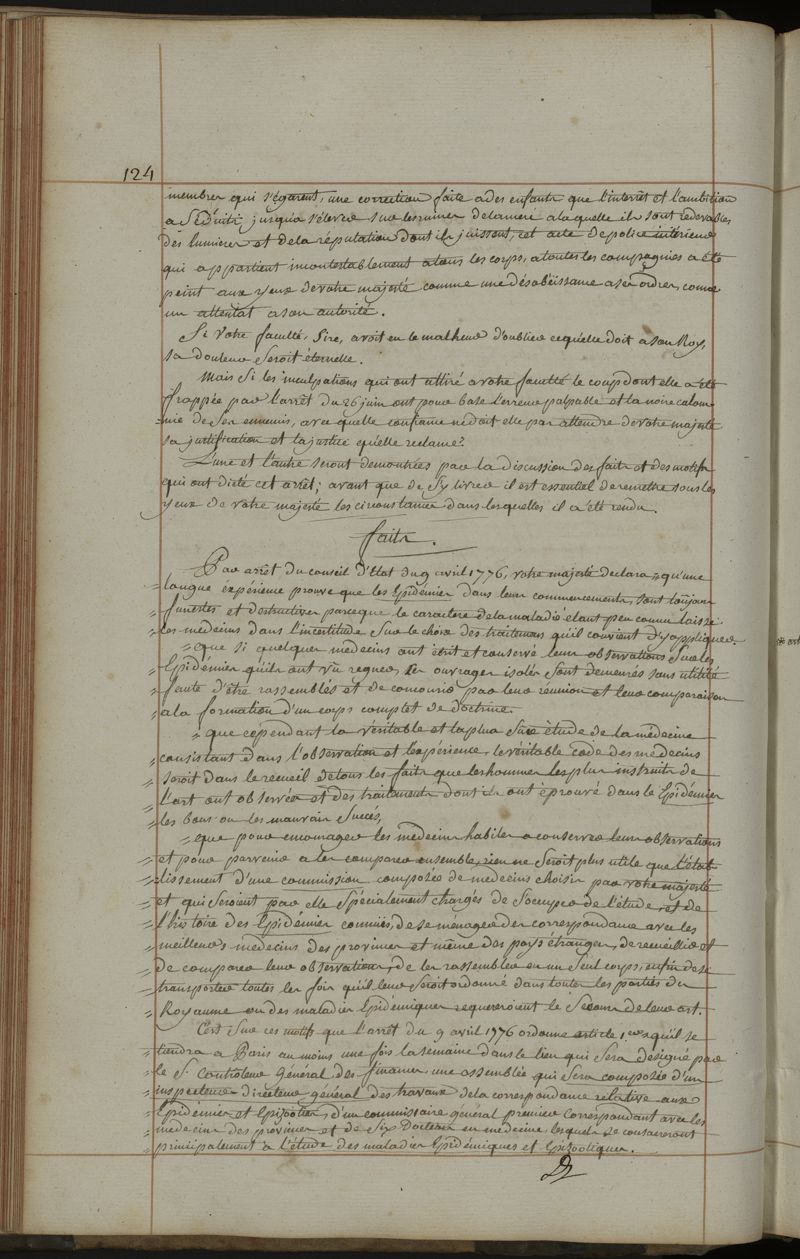 124
membres qui s'égarent, une correction faite a des enfants que l'interrêt et l'ambition
a séduits jusqu'a s'élever sur les ruines de la mere a la quelle ils sont redevables
des lumieres et de la réputation dont ils jouissent, cet acte de police intérieure
qui appartient incontestablement a tous les corps, a toutes les compagnies a été
peint aux yeux de votre majesté comme une désobéissance a ses ordres, comme
un attentat a son autorité.
Si votre faculté, Sire, avoit eu le malheur d'oublier ce qu'elle doit a son Roy,
sa douleur seroit éternelle.
Mais si les inculpations qui ont attiré a votre faculté le coup dont elle a été
frappée par l'arrêt du 26 juin ont pour base l'erreur palpable et la noire calom-
-nie de ses ennemis, avec quelle confiance ne doit elle pas attendre de votre majesté
sa justification et la justice qu'elle réclame?
L'une et l'autre seront demontrées par la discussion des faits et des motifs
qui ont dicté cet arrêt; avant que de s'y livrer il est essentiel de remettre sous les
yeux de votre majesté les circonstances dans lesquelles il a été rendu.
faits.
Par arrêt du conseil d'Etat du 9 avril 1776, votre majesté declara "qu'une
" longue expérience prouve que les Epidémies dans leur commencement, sont toujours
" funestes et destructives parceque le caractere de la maladie étant peu connu laisse
" les medecins dans l'incertitude sur le choix des traitemens qu'il convient d'y appliquer.
" que si quelques medecins ont écrit et conservé leurs observations sur les
" Epidémies qu'ils ont vû regner, ces ouvrages isolés sont demeurés sans utilité
" faute d'être rassemblés et de concourir par leur réunion et leur comparaison
" a la formation d'un corps complet de doctrine.
" que cependant la véritable et la plus sure étude de la médecine
" consistant dans l'observation et l'expérience, le véritable code des medecins
" seroit dans le recueil de tous les faits que les hommes les plus instruits de
" l'art ont observés et des traitements dont ils ont éprouvé dans les Epidémies
" les bons ou les mauvais succès,
" que pour encourager les médecins habiles a conserver leurs observations
" et pour parvenir a les comparer ensemble, rien ne seroit plus utile que l'étab-
" lissement d'une commission composée de medecins choisis par votre majesté
" et qui seroient par elle spécialement chargés de s'occuper de l'étude et de
" l'histoire des Epidémies connues, de se ménager des correspondances avec les
" meilleurs medecins des provinces et même des pays étrangers, de recueillir et
" de comparer leurs observations, de les rassembler en un seul corps, enfin de se
" transporter toutes les fois qu'il leur seroit ordonné dans toutes les parties du
" Royaume ou des maladies Epidémiques requereroient le secours de leur art.
C'est sur ces motifs que l'arrêt du 9 avril 1776 ordonne article 1.er "qu'il se
" tiendra a Paris au moins une fois la semaine dans le lieu qui sera designé par
" le S. Controleur Général des finances une assemblée qui sera composée d'un
" inspecteur directeur général des travaux de la correspondance relative aux
" Epidémies et Epizooties, d'un commissaire général premier correspondant avec les
" medecins des provinces et de six Docteurs en medecine, lesquels se consacreront
" principalement a l'étude des maladies Epidémiques et Epizootiques.